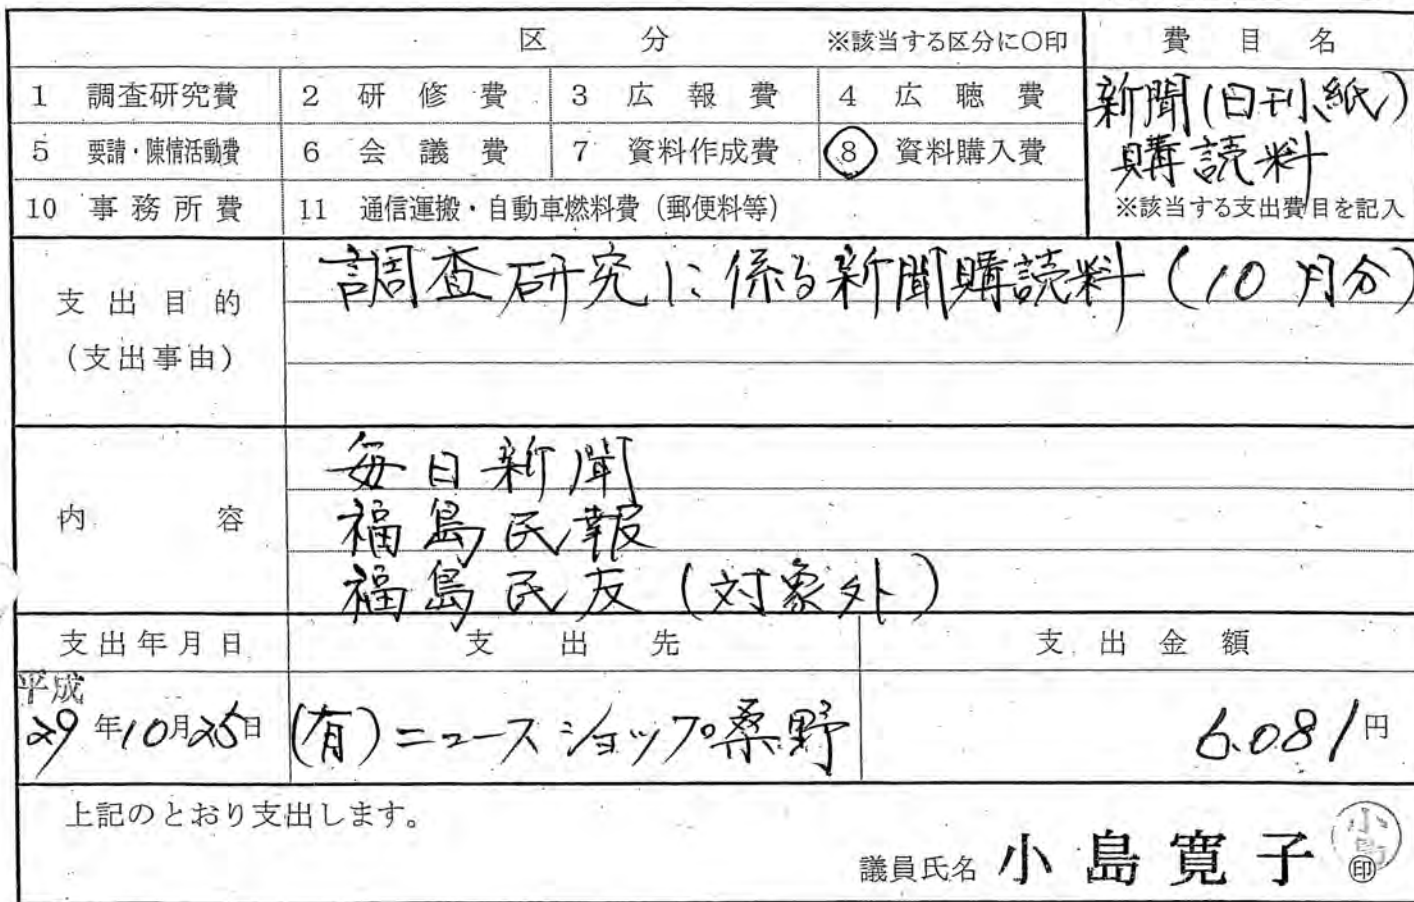 区 分 ※該当する区分に○印 費 目 名
1 調査研究費 2 研修費 3 広報費 4 広聴費 新聞(日刊紙)
5 要請・陳情活動費 6 会議費 7 資料作成費 8 資料購入費 購読料
10 事務所費 11 通信運搬・自動車燃料費(郵便料等) ※該当する支出費目を記入
支出目的 調査研究に係る新聞購読料(10月分)
(支出事由)
毎日新聞
内 容 福島民報
福島民友(対象外)
支出年月日 支出先 支出金額
平成
29年10月25日 (有)ニュースショップ桑野 6.081円
上記のとおり支出します。
議員氏名 小島寛子 小島 印